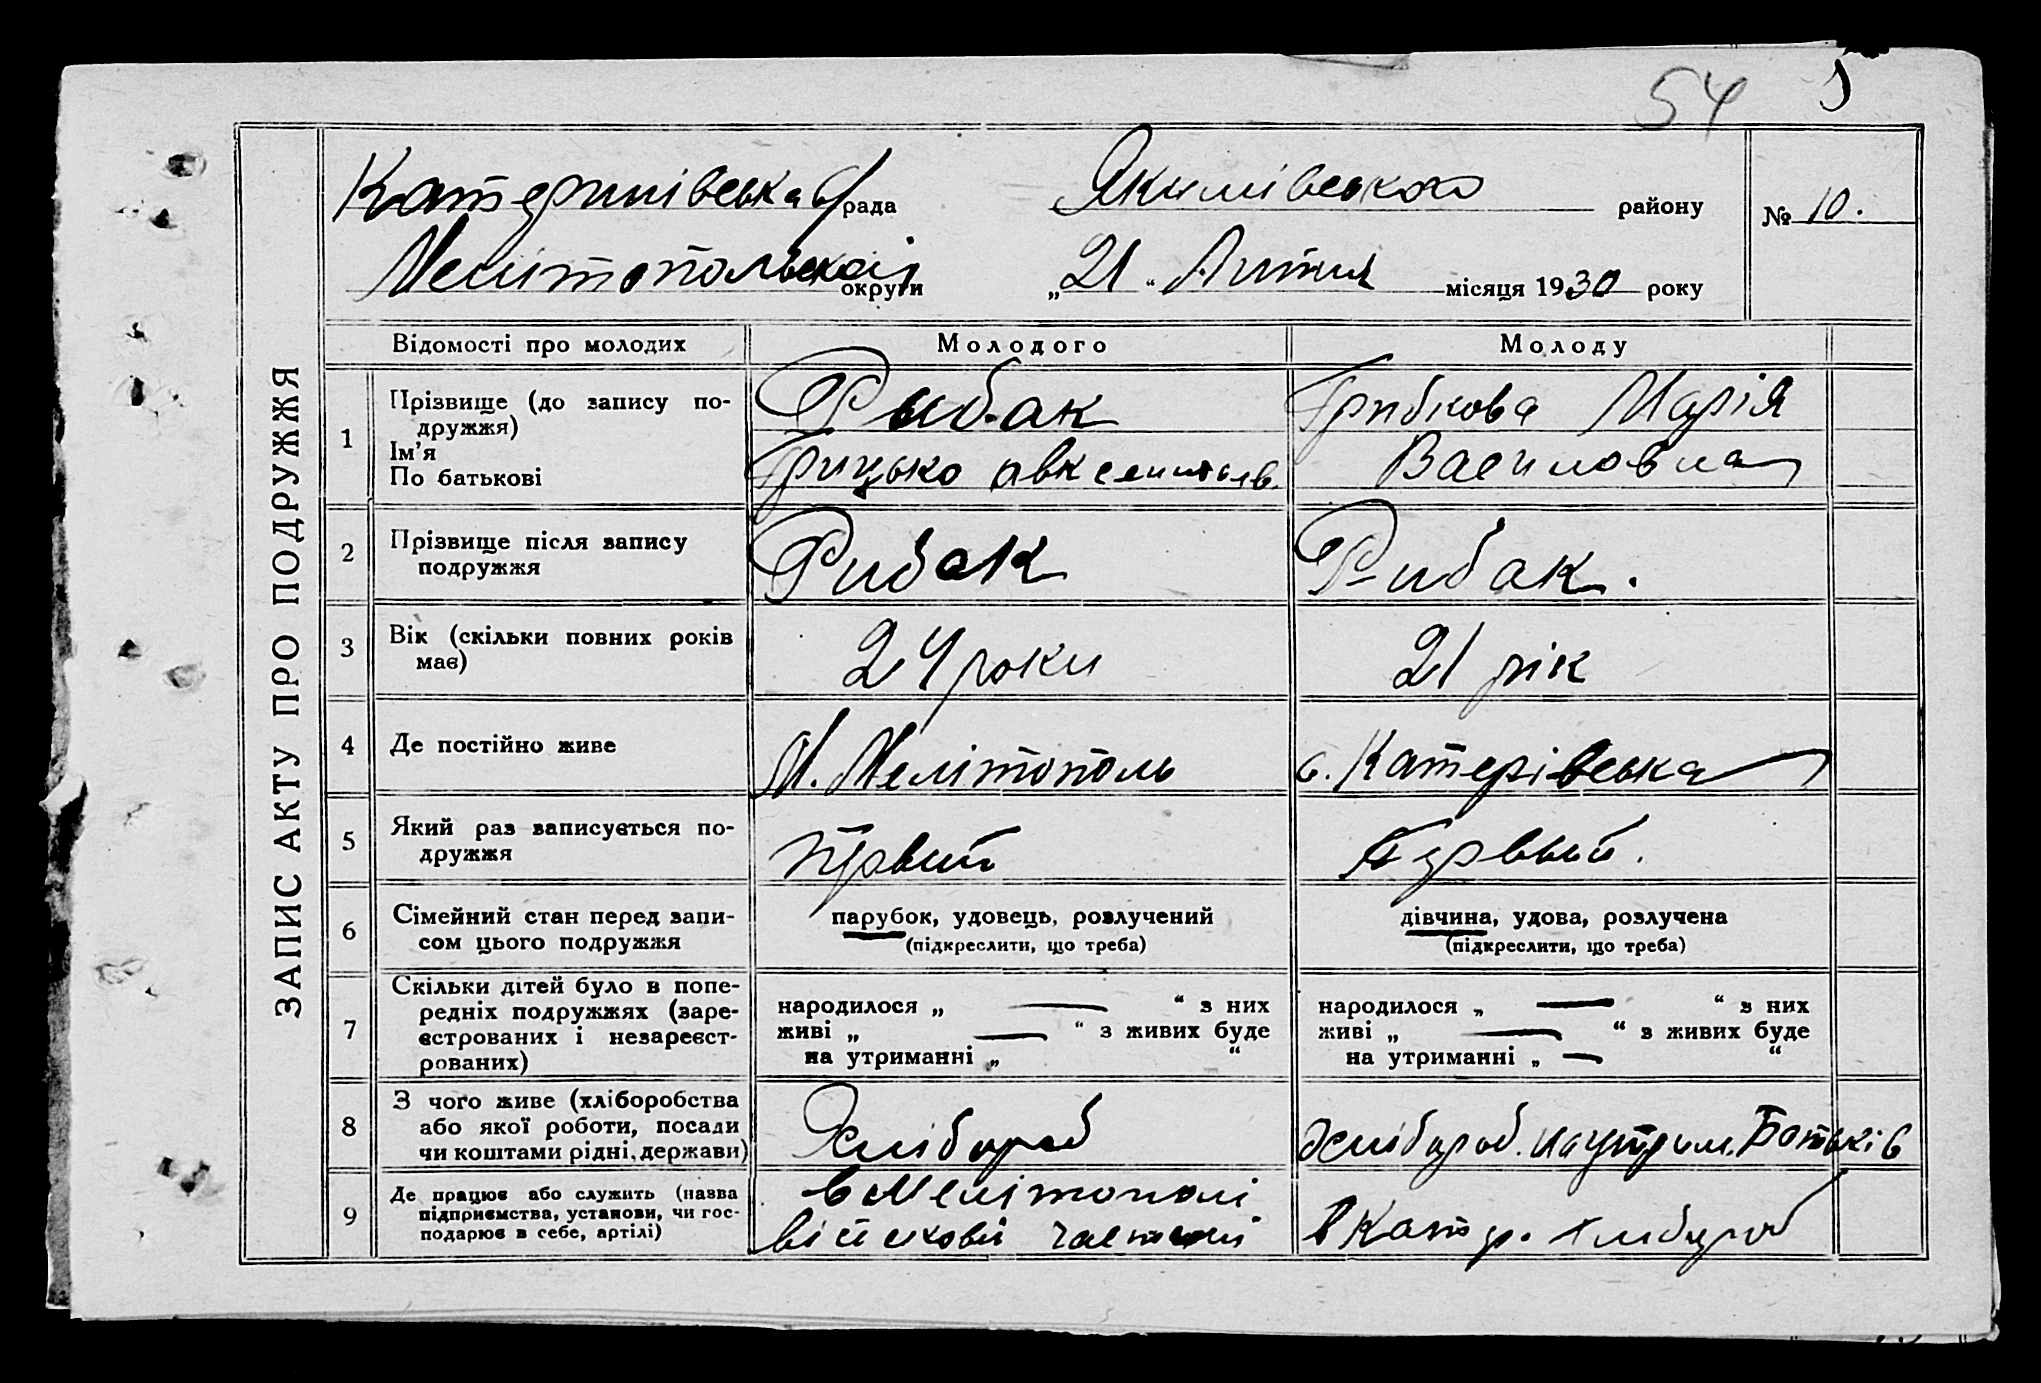 54
ЗАПИС АКТУ ПРО ПОДРУЖЖЯ
Катеринівська с/рада Якимівського району № 10.
Мелітопольської округи „21“ Лютня місяця 1930 року
Відомості про молодих Молодого Молоду
1 Прізвище (до запису по-
дружжя)
Ім’я
По батькові
Рыбак
Грицько Авксентієв.
Грибкова Марія
Василовна
2 Прізвище після запису
подружжя
Рибак
Рибак.
3 Вік (скільки повних років
має)
24 роки
21 рік
4 Де постійно живе
М. Мелітополь
с. Катерівська
5 Який раз записується по-
дружжя
Первий
Первый.
6 Сімейний стан перед запи-
сом цього подружжя
парубок, удовець, розлучений
(підкреслити, що треба)
дівчина, удова, розлучена
(підкреслити, що треба)
7 Скільки дітей було в попе-
редніх подружжях (заре-
єстрованих і незареєст-
рованих)
народилося „ — “ з них
живі „ — “ з живих буде
на утриманні „ “
народилося „ — “ з них
живі „ — “ з живих буде
на утриманні „ — “
8 З чого живе (хліборобства
або якої роботи, посади
чи коштами рідні, держави)
Хлібороб
Хлібороб. на утрим. Батьків
9 Де працює або служить (назва
підприємства, установи, чи гос-
подарює в себе, артілі)
в Мелітополі
військовій частині
в Катер. хлібороб